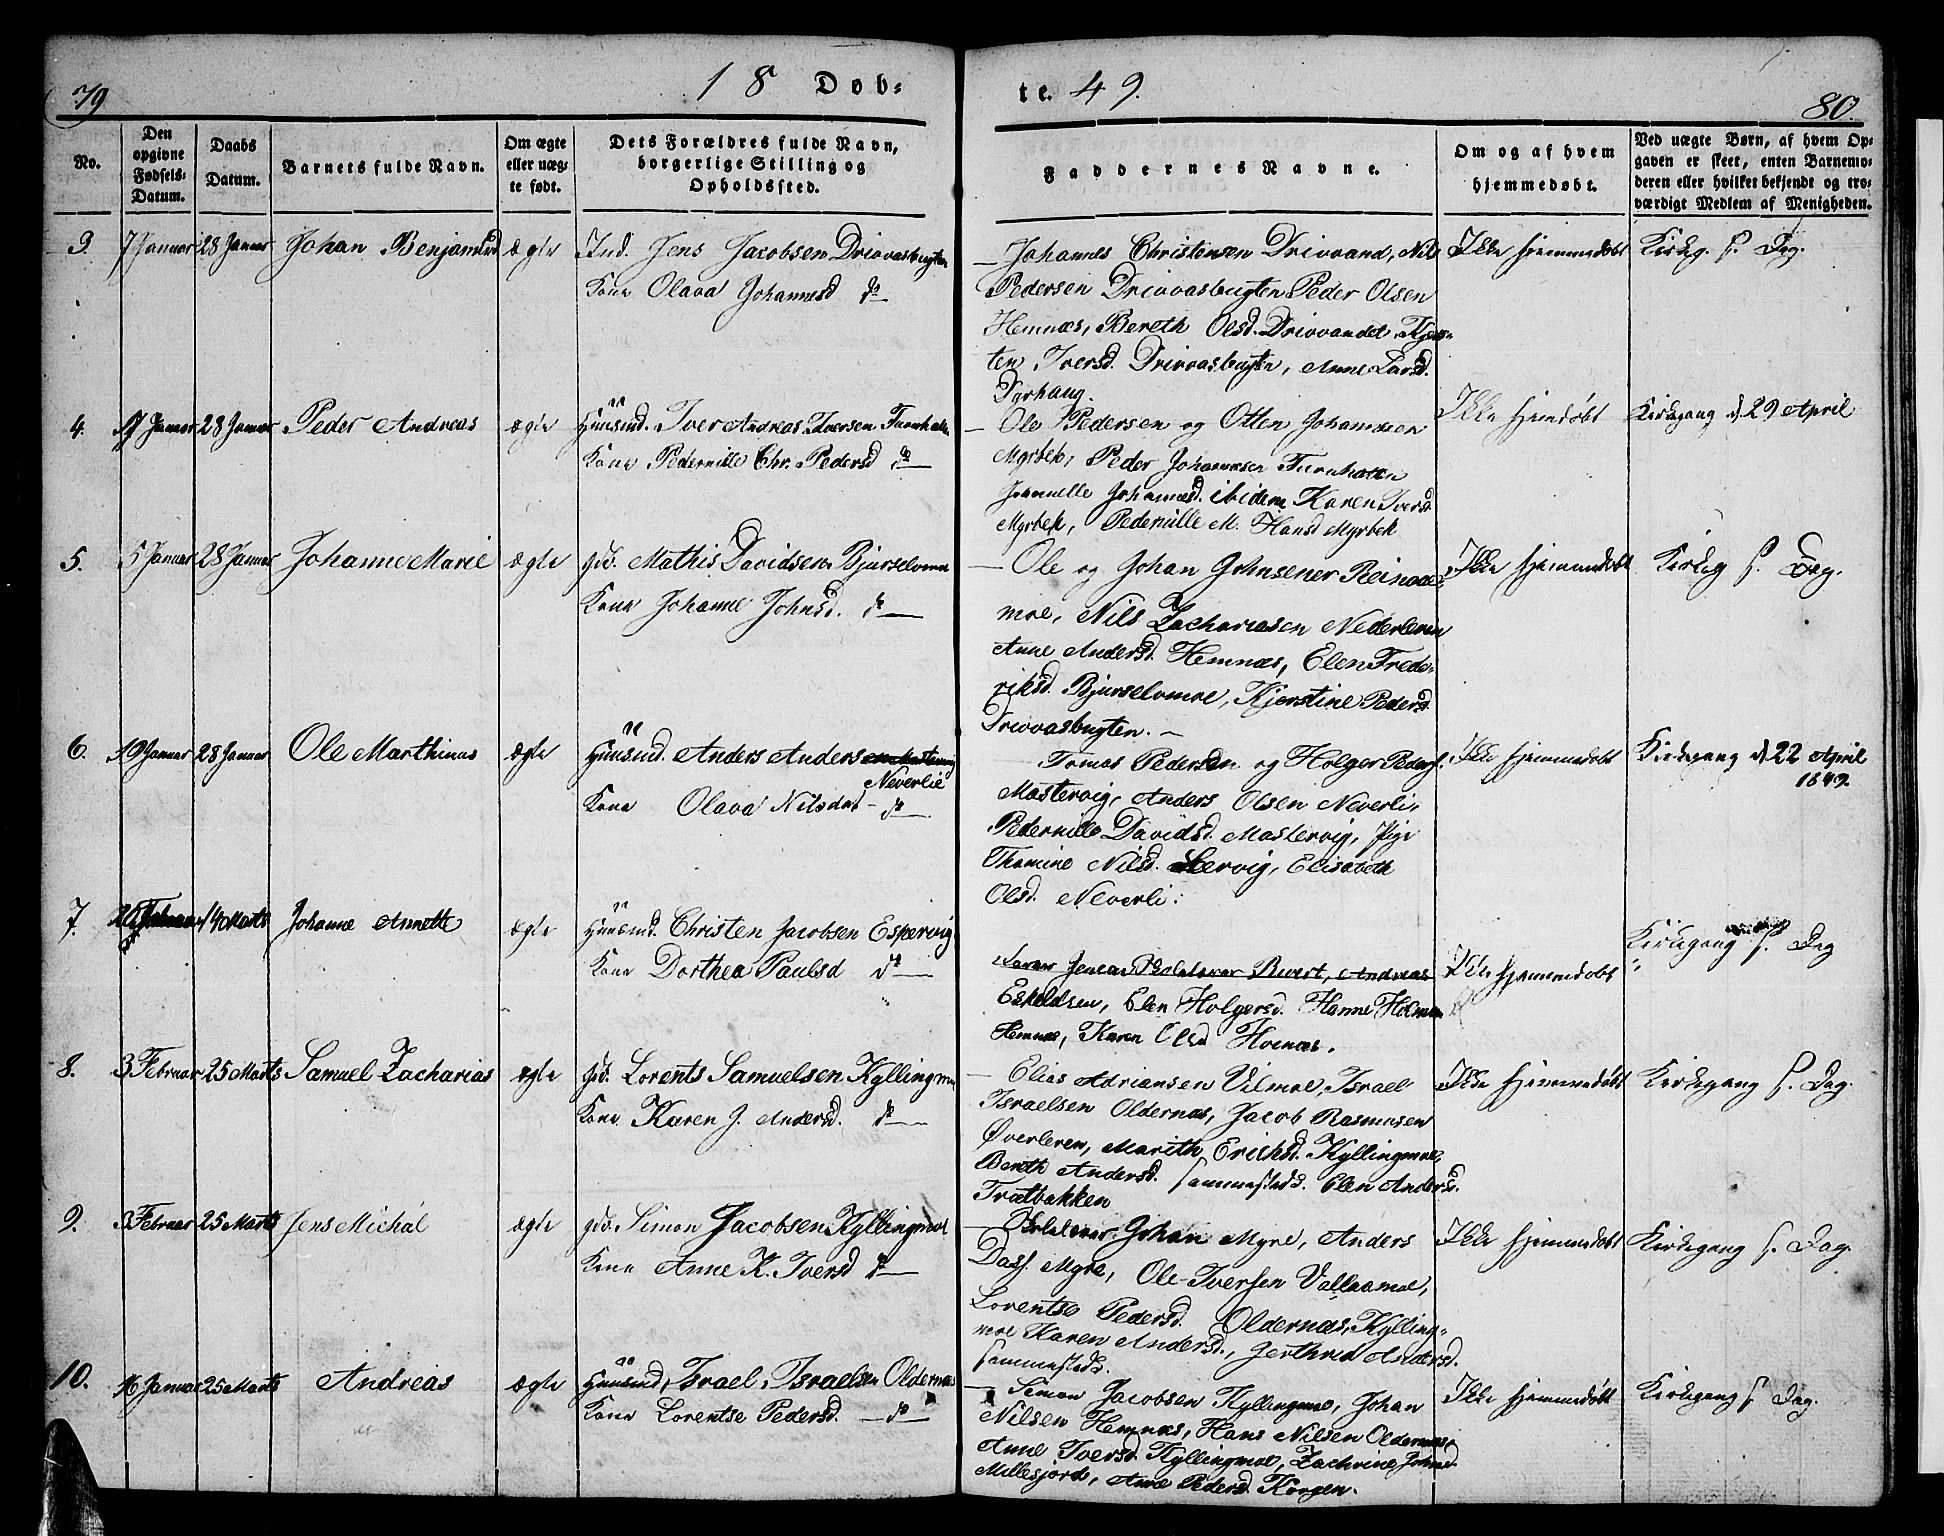 79
18 Døb-
te. 49.
80.
No.
Den opgivne Fødsels-Datum.
Daabs Datum.
Barnets fulde Navn.
Om ægte eller uæg-te født.
Dets Forældres fulde Navn, borgerlige Stilling og Opholdssted.
Faddernes Navne.
Om og af hvem hjemmedøbt.
Ved uægte Børn, af hvem Op-gaven er skeet, enten Barnemo-deren eller hvilket bekjendt og tro-værdigt Medlem af Menigheden.
3. 7 Januar 28 Januar Johan Benjamin ægte Ind. Jens Jacobsen Drivvasbugten
Kone Olava Johannesd do
Johannes Christensen Drivvand, Nils
Pedersen Drivvasbugten Peder Olsen
Hemnæs, Bereth Olsd. Drivvandet, Kjers-
ten Iversd. Drivvasbugten, Anne Larsd.
Dyrhaug.
Ikke hjemmedøbt Kirkeg. s. Dag.
4. 17 Januar 28 Januar Peder Andreas ægte Huusmd. Iver Andreas Iversen
Kone Pedernille Chr. Pedersd do
Ole Pedersen og Otten Johannesen
Myrbek, Peder Johannesen
Johannesd. ibidem Karen Iversd
Myrbek, Pedernille M. Hansd Myrbek
Ikke hjemdøbt Kirkegang d. 29 April
5. 5 Januar 28 Januar Johanne Marie ægte gd. Mathis Davidsen Bjurselvmoe
Kone Johanne Johnsd. do
Ole og Johan Johnsener Reinaae-
moe, Nils Zachariasen Nederleren
Anne Andersd. Hemnæs, Elen Frede-
riksd. Bjurselvmoe, Kjerstine Pedersd
Drivvasbugten.
Ikke hjemmedøbt Kirkeg s. Dag.
6. 19 Januar 28 Januar Ole Marthinus ægte Huusmd. Anders Andersen Mastervig
Neverlie
Kone Olava Nilsdat do
Tomas Pedersen og Holger Peders.
Mastervig, Anders Olsen Neverli,
Pedernille Davidsd. Mastervig, Pige
Thomine Nilsd. Lervig, Elisabeth
Olsd. Neverli.
Ikke hjemmedøbt Kirkegang d. 22 April
1849.
7. Februar 14 Marts Johanne Annette ægte Huusmd. Christen Jacobsen Espervig
Kone Dorthea Paulsd do
Jensen Andreas
Eskeldsen, Elen Holgersd. Hanne Holman
Hemnæs, Karen Olsd
Ikke hjemmedøbt Kirkegang s. Dag
8. 3 Februar 25 Marts Samuel Zacharias ægte gd. Lorents Samuelsen Kyllingmoe
Kone Karen J. Andersd. do
Elias Adriansen Vilmoe, Israel
Israelsen Oldernæs, Jacob Rasmusen
Øverleren, Marith Ericksd. Kyllingmoe,
Bereth Andersd. sammesteds. Elen Andersd.
Trætbakken
Ikke hjemmedøbt Kirkegang s. Dag.
9. Februar 25 Marts Jens Michal ægte gd. Simon Jacobsen Kyllingmoe
Kone Anne K. Iversd do
Johan Myre, Anders
Dass. Myre, Ole Iversen Vallaamoe,
Lorentse Pedersd. Oldernæs, Kylling-
moe Karen Andersd., Gerthrud Andersd.
sammesteds.
Ikke hjemmedøbt Kirkegang s. Dag.
10. 16 Januar 25 Marts Andreas ægte Huusmd, Israel Israelsen Oldernæs
Kone Lorentse Pedersd. do
Simon Jacobsen Kyllingmoe, Johan
Nilsen Hemnæs, Hans Nilsen Oldernæs,
Anne Iversd. Kyllingmoe, Zachrine Johnsd.
Millesjord, Ane Pedersd. Korgen.
Ikke hjemmedøbt Kirkegang s. Dag.